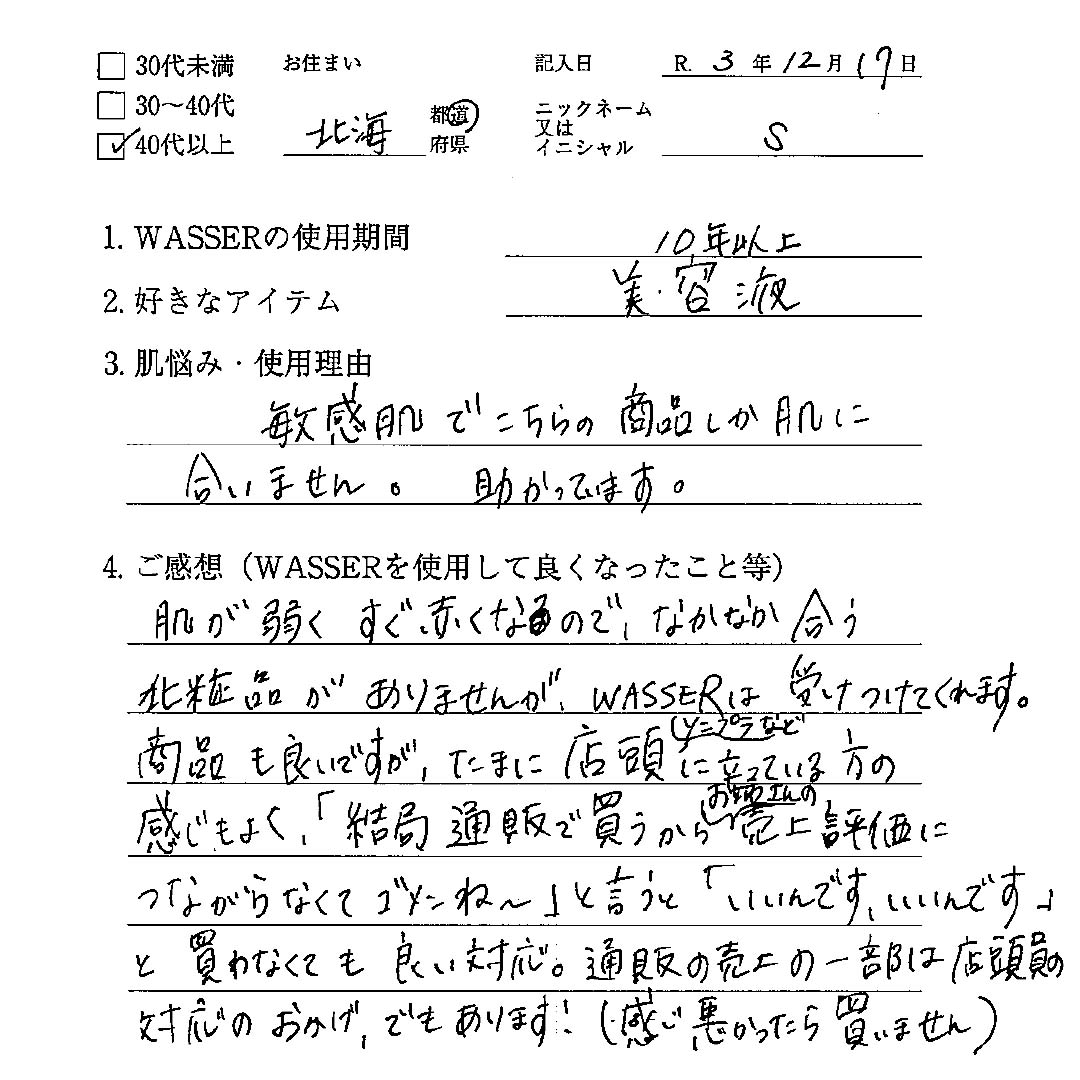 30代未満 お住まい 記入日 R. 3 年 12 月 17 日
30〜40代 北海 都道府県 ニックネーム又はイニシャル S
40代以上
1. WASSERの使用期間 10年以上
2. 好きなアイテム 美容液
3. 肌悩み・使用理由
敏感肌でこちらの商品しか肌に
合いません。 助かってます。
4. ご感想（WASSERを使用して良くなったこと等）
肌が弱くすぐ赤くなるので、なかなか合う
化粧品がありませんが、WASSERは受けつけてくれます。
商品も良いですが、たまに店頭（ソニプラなど）に立っている方の
感じもよく、「結局通販で買うからお姉さんの売上評価に
つながらなくてゴメンね〜」と言うと「いいんです、いいんです」
と買わなくても良い対応。通販の売上の一部は店頭員の
対応のおかげ、でもあります！（感じ悪かったら買いません）